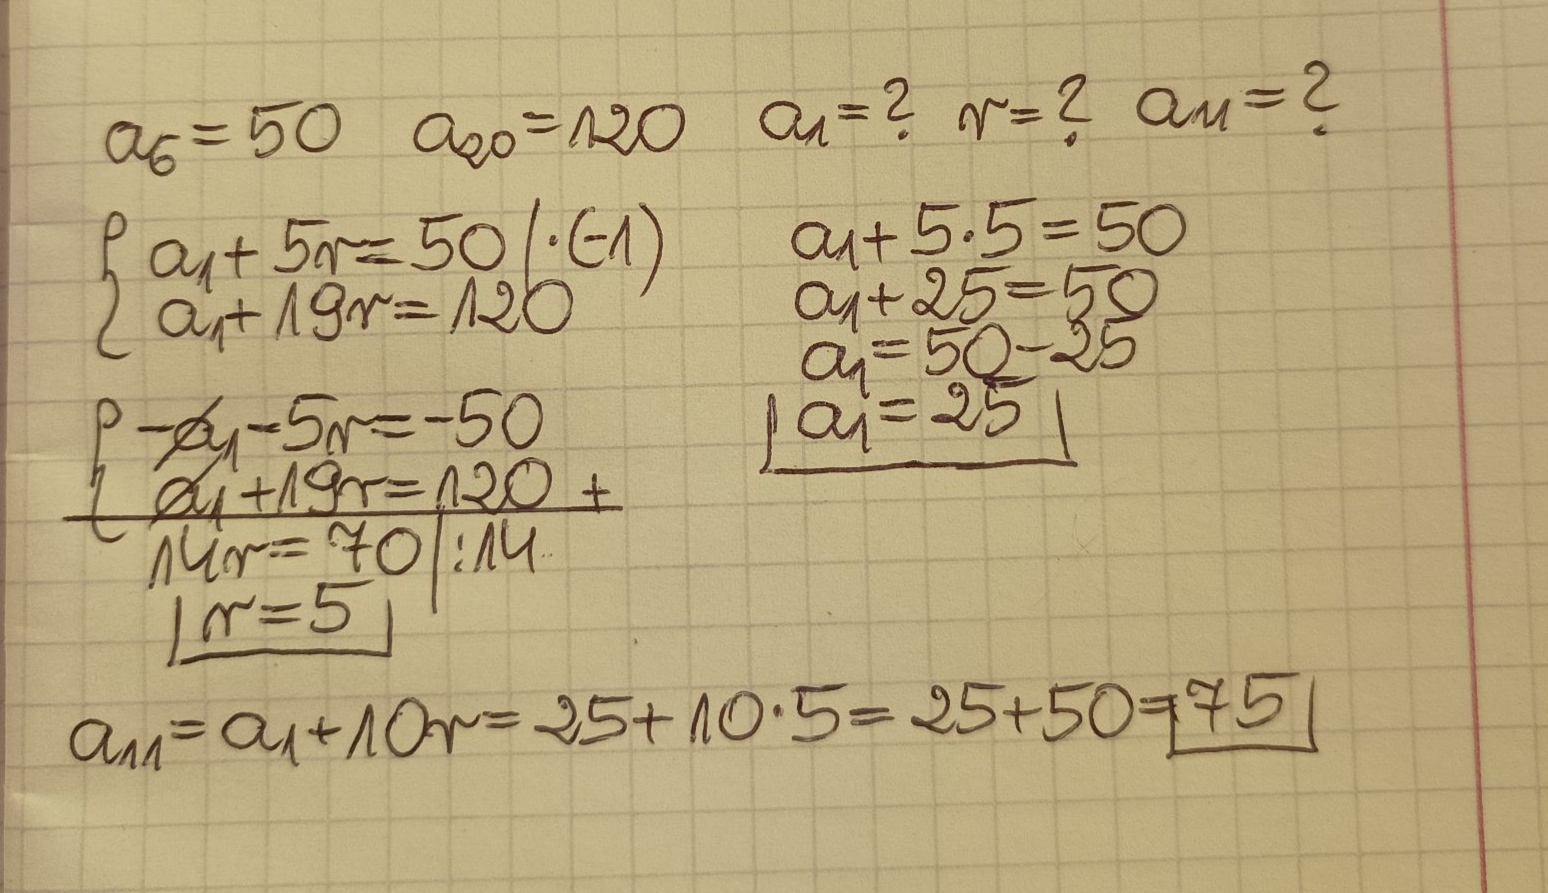 a₆ = 50 a₂₀ = 120 a₁ = ? r = ? a₁₁ = ?
{ a₁ + 5r = 50 | · (-1)
a₁ + 19r = 120
{ -a₁ - 5r = -50
a₁ + 19r = 120 +
14r = 70 | : 14
r = 5
a₁ + 5 · 5 = 50
a₁ + 25 = 50
a₁ = 50 - 25
a₁ = 25
a₁₁ = a₁ + 10r = 25 + 10 · 5 = 25 + 50 = 75